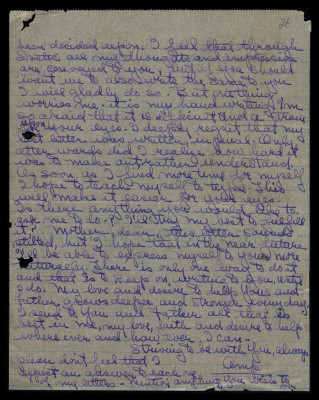 26
been decided upon. I feel that through
all my thoughts and impressions
are conveyed to you, but if you should
want me to also write the same to you
I will gladly do so. But one thing
worries me - it is my hand writing. I'm
so afraid that it is difficult and a strain
upon your eyes. I deeply regret that my
last letter was written in pencil. Only
afterwards did I realize how hard it
was to make out rather understand.
As soon as I find more time for myself
I hope to teach myself to type. This
will make it easier for your eyes.
Is there anything you would like to
ask me to do? I'll try my best to fulfill
it. Mother, dear, this letter sounds
stilted, but I hope that in the near future
I'll be able to express myself to you more
naturally. There is only one way to do it
and that is to keep on writing to you, which
I do. My love and desire to help you and
father grows deeper and stronger every day.
I send to you and father all that is
best in me, my love, faith and desire to help
where ever and how ever I can.
Striving to be with you, always
please don't feel that I
expect an answer to each one
of my letters - Mention anything you wish to